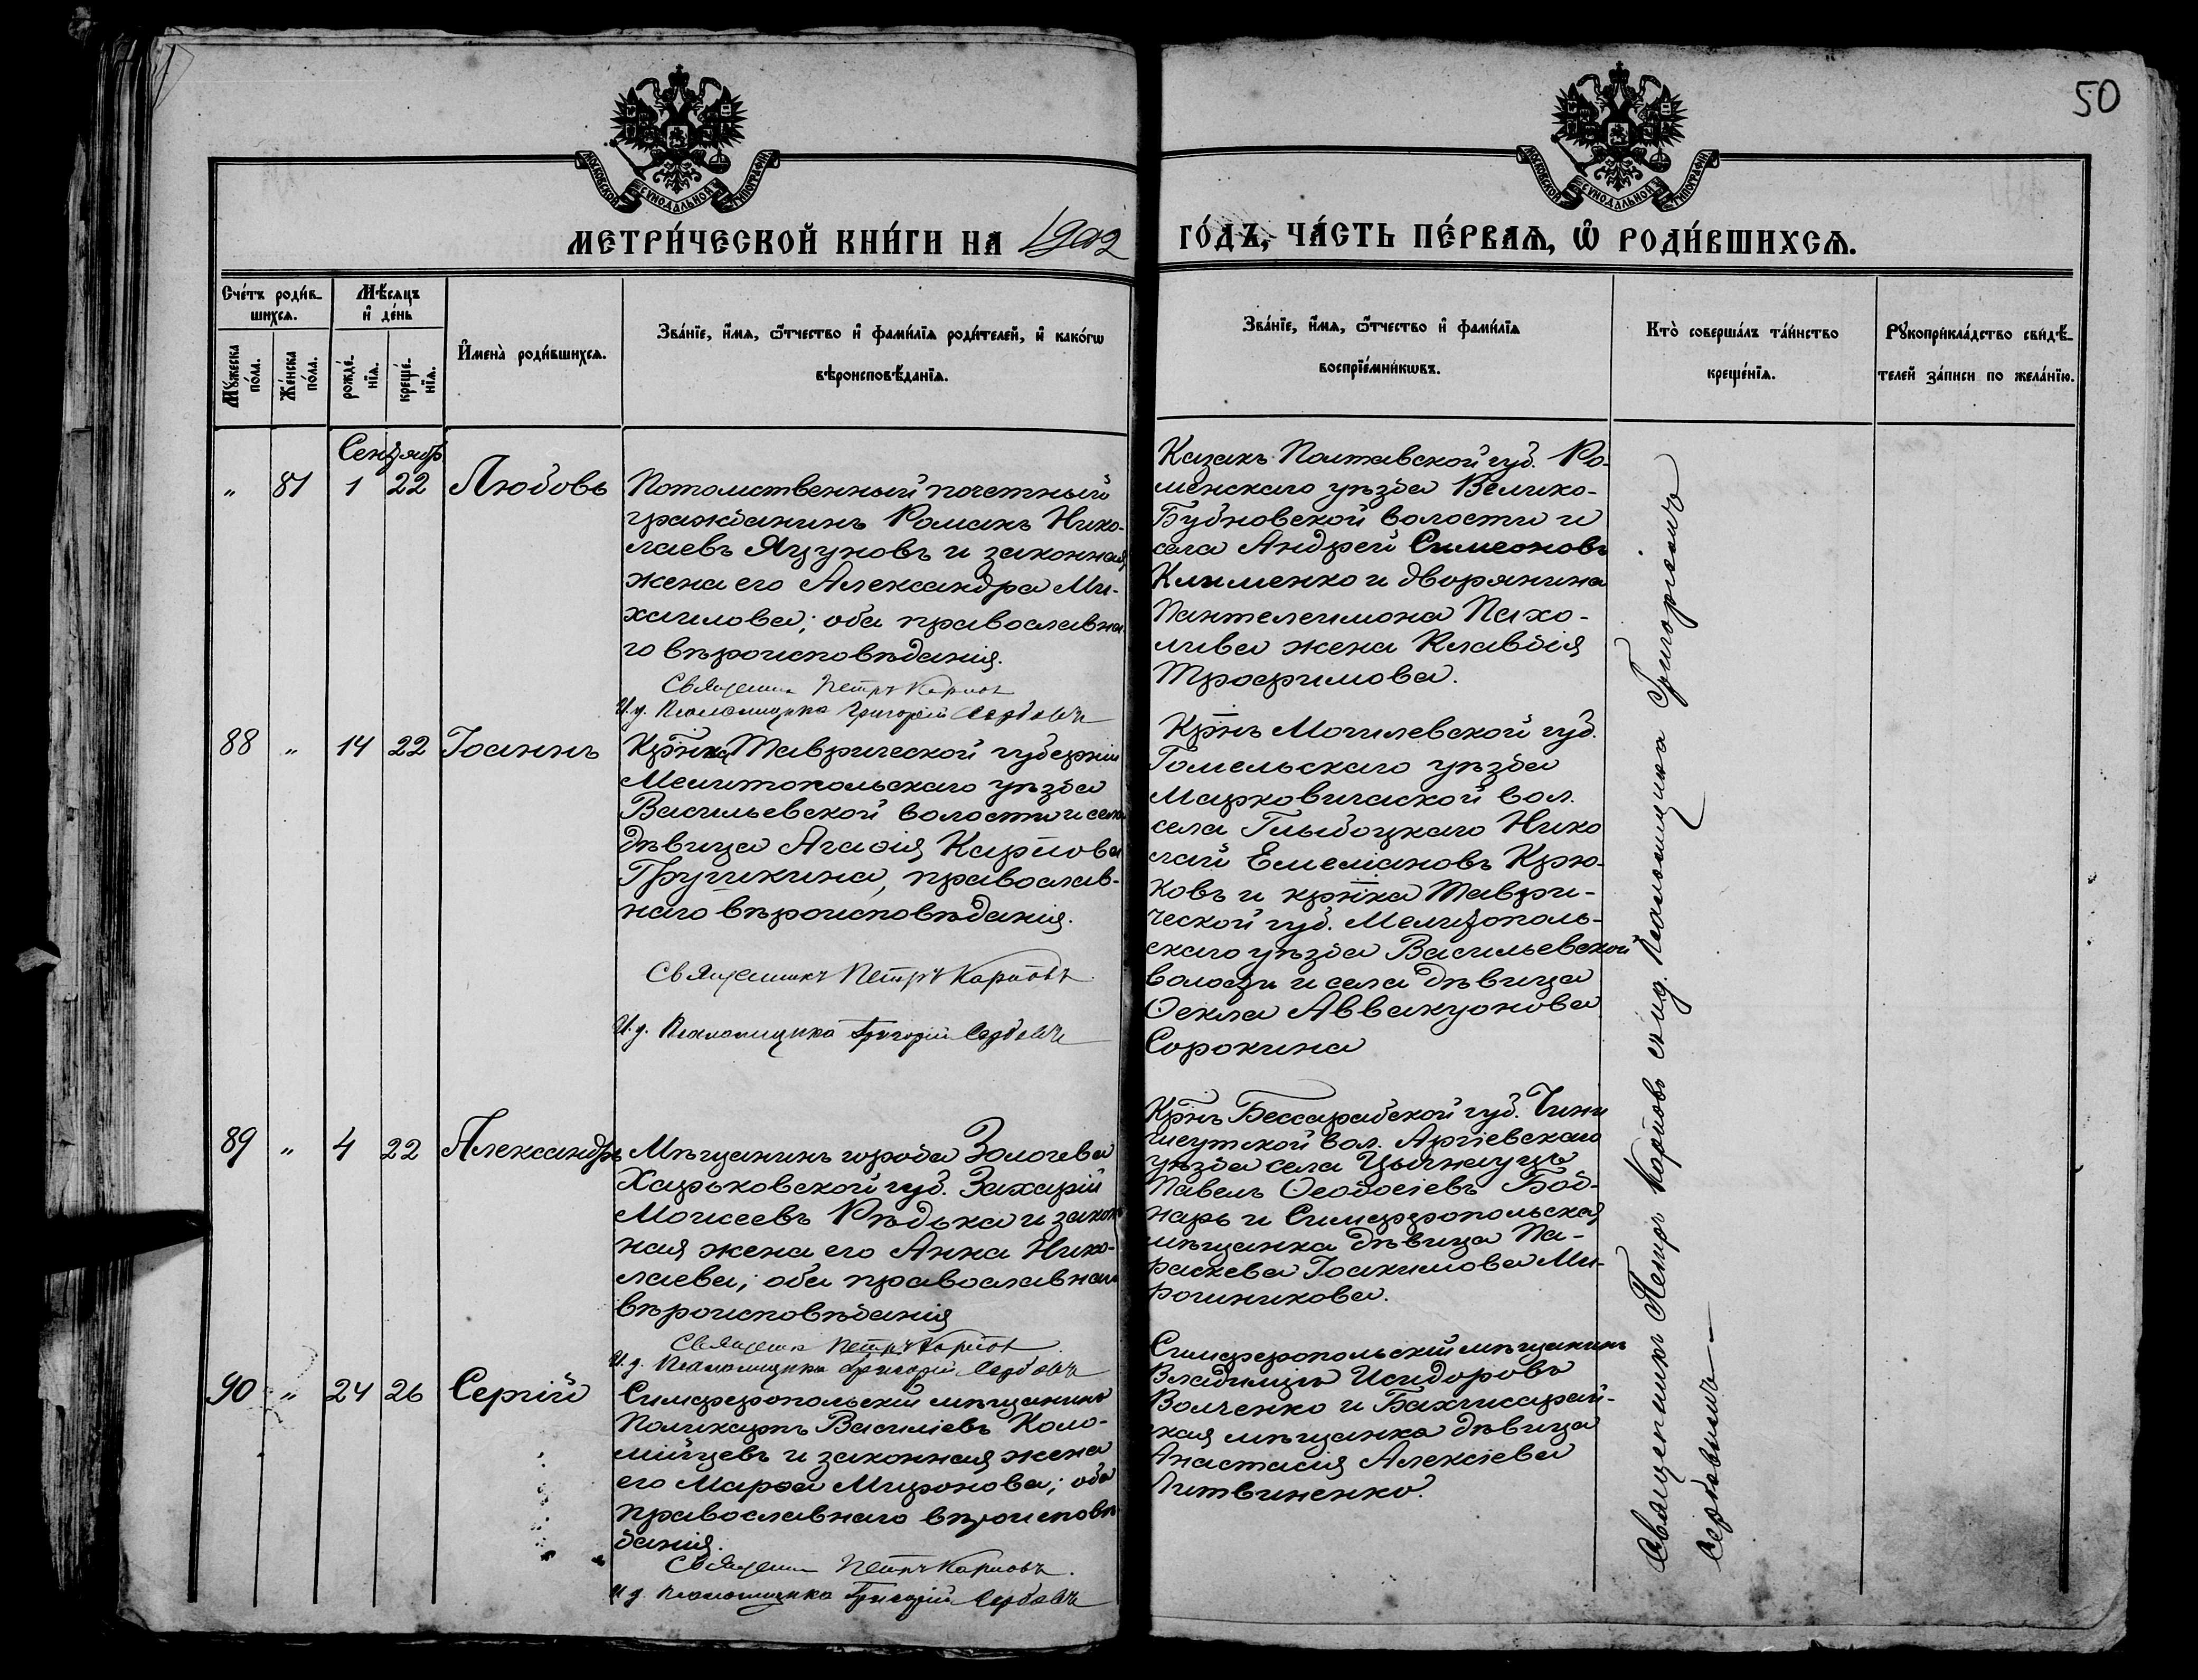 50
МОСКОВСКОЙ СУНОДАЛЬНОЙ ТИПОГРАФІИ
МОСКОВСКОЙ СУНОДАЛЬНОЙ ТИПОГРАФІИ
МЕТРИ́ЧЕСКОЙ КНИ́ГИ НА 1902
ГО́ДЪ, ЧА́СТЬ ПЕ́РВАѦ, Ѽ РОДИ́ВШИХСѦ.
Сче́тъ роди́в-
шихсѧ.
Мѣ́сѧцъ
и҆ де́нь
Мꙋ́жеска
по́ла.
Же́нска
по́ла.
рожде́-
нїѧ.
креще́-
нїѧ.
И҆мена̀ роди́вшихсѧ.
Зва́нїе, и҆́мѧ, ѻ҆́тчество и҆ фами́лїѧ роди́телей, и҆ како́гѡ
вѣроисповѣ́данїѧ.
Зва́нїе, и҆́мѧ, ѻ҆́тчество и҆ фами́лїѧ
воспрїе́мникѡвъ.
Кто̀ соверша́лъ та́инство
креще́нїѧ.
Рꙋкоприкла́дство свидѣ́-
телей за́писи по жела́нїю.
Сентябр
" 81 1 22 Любовь
Потомственный почетный
гражданинъ Романъ Нико-
лаевъ Яцуновъ и законная
жена его Александра Ми-
хаилова; оба православна
го вѣроисповѣданія.
Священник Петръ Карпов
И. д. Псаломщика Григорій Сербовъ
Казакъ Полтавской губ. Ро-
менскаго уѣзда Велико-
Бубновской волости и
села Андрей Симеоновъ
Клименко и дворянина
Пантелеимона Пахо-
лива жена Клавдія
Трофимова.
88 " 14 22 Іоаннъ
Крнка Таврической губерніи
Мелитопольскаго уѣзда
Васильевской волости и села
дѣвица Агафія Карпова
Грушкина, православ-
наго вѣроисповѣданія.
Священникъ Петръ Карповъ
И. д. Псаломщика Григорій Сербовъ
Крнъ Могилевской губ.
Гомельскаго уѣзда
Марковичской вол.
села Глыбоцкаго Нико
лай Емеліановъ Крю-
ковъ и крнка Таври-
ческой губ. Мелитополь-
скаго уѣзда Васильевской
волости и села дѣвица
Ѳекла Аввакумова
Сорокина
89 " 4 22 Александръ
Мѣщанинъ города Золочева
Харьковской губ. Захарій
Моисеевъ Рѣдька и закон
ная жена его Анна Нико-
лаева; оба православнаго
вѣроисповѣданія
Священник Петръ Карпов
И. д. Псаломщика Григорій Сербовъ
Крнъ Бессарабской губ. Чини
шеутской вол. Оргіевскаго
уѣзда села
Павелъ Ѳеодосіевъ Бод-
нарь и Симферопольская
мѣщанка дѣвица Па-
раскева Іоакимова Ми-
рошникова.
90 " 24 26 Сергій
Симферопольскій мѣщанинъ
Поликарпъ Василіевъ Коло-
мійцевъ и законная жена
его Марѳа Миронова; оба
православнаго вѣроисповѣ
данія.
Священник Петръ Карповъ.
И д. Псаломщика Григорій Сербовъ
Симферопольскій мѣщанинъ
Владиміръ Исидоровъ
Волченко и Бахчисарай-
ская мѣщанка дѣвица
Анастасія Алексіева
Литвиненко.
Священникъ Петръ Карповъ съ и.д. Псаломщика Григоріемъ
Сербовымъ